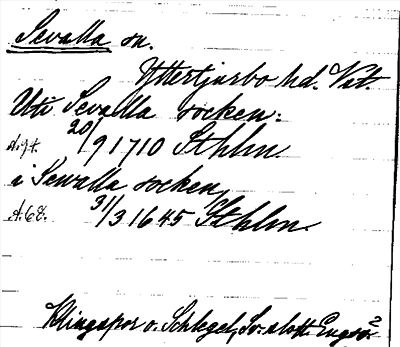 Sevalla sn.
Yttertjurbo hd. Vst.
Uti Sevalla socken:
20/9 1710 Sthlm.
i Sewalla socken,
A. 68. 31/3 1645 Sthlm.
Klingspor o. Schlegel, Sv. slott. Engsö. 2